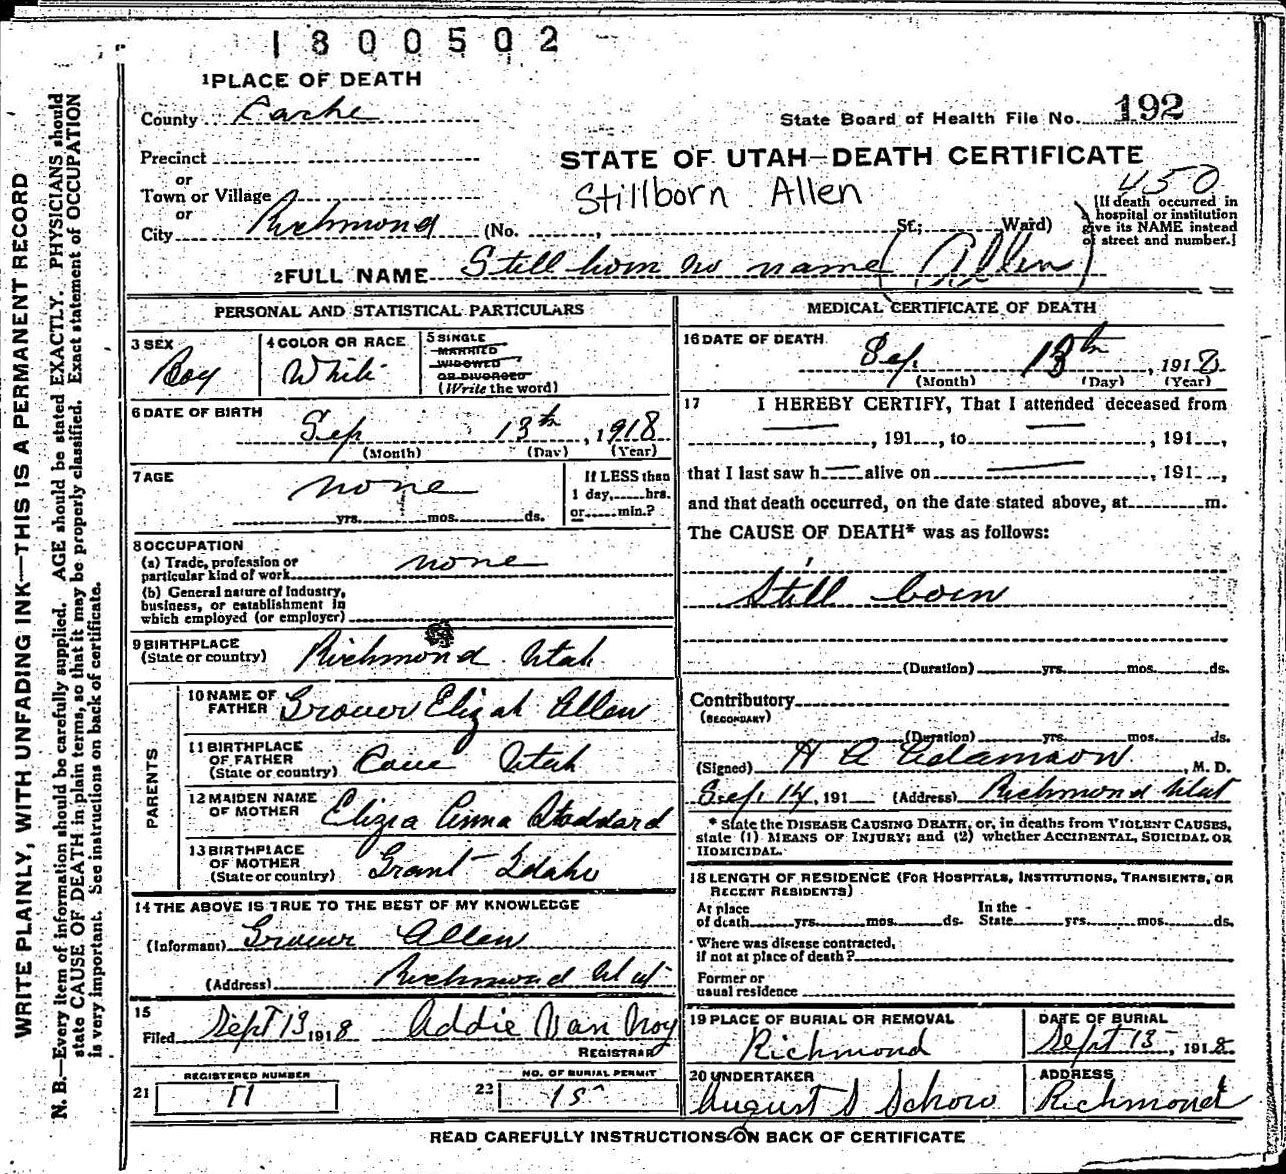 1800502
1 PLACE OF DEATH
County Cache
State Board of Health File No. 192
Precinct
or
STATE OF UTAH—DEATH CERTIFICATE
Town or Village
Stillborn Allen
450
or
City Richmond (No. , St.; Ward)
[If death occurred in
a hospital or institution
give its NAME instead
of street and number.]
2 FULL NAME Still born no name (Allen)
PERSONAL AND STATISTICAL PARTICULARS
3 SEX
Boy
4 COLOR OR RACE
White
5 SINGLE
MARRIED
WIDOWED
OR DIVORCED
(Write the word)
6 DATE OF BIRTH
Sep 13th, 1918
(Month) (Day) (Year)
7 AGE
none
yrs. mos. ds.
If LESS than
1 day, hrs.
or min.?
8 OCCUPATION
(a) Trade, profession or
particular kind of work none
(b) General nature of Industry,
business, or establishment in
which employed (or employer)
9 BIRTHPLACE
(State or country) Richmond Utah
PARENTS
10 NAME OF
FATHER Grover Elizah Allen
11 BIRTHPLACE
OF FATHER
(State or country) Cove Utah
12 MAIDEN NAME
OF MOTHER Elizia Anna Stoddard
13 BIRTHPLACE
OF MOTHER
(State or country) Grant Idaho
14 THE ABOVE IS TRUE TO THE BEST OF MY KNOWLEDGE
(Informant) Grover Allen
(Address) Richmond Utah
15
Filed Sept 13 1918 Addie Van Noy
REGISTRAR
REGISTERED NUMBER
21 11
NO. OF BURIAL PERMIT
22 15
MEDICAL CERTIFICATE OF DEATH
16 DATE OF DEATH
Sep. 13th, 1918
(Month) (Day) (Year)
17 I HEREBY CERTIFY, That I attended deceased from
, 191 , to , 191 ,
that I last saw h alive on , 191 ,
and that death occurred, on the date stated above, at m.
The CAUSE OF DEATH* was as follows:
Still born
(Duration) yrs. mos. ds.
Contributory
(SECONDARY)
(Duration) yrs. mos. ds.
(Signed) H A Adamson, M. D.
Sep. 14, 191 (Address) Richmond Utah
* State the DISEASE CAUSING DEATH, or, in deaths from VIOLENT CAUSES,
state (1) MEANS OF INJURY; and (2) whether ACCIDENTAL, SUICIDAL OR
HOMICIDAL.
18 LENGTH OF RESIDENCE (FOR HOSPITALS, INSTITUTIONS, TRANSIENTS, OR
RECENT RESIDENTS)
At place
of death yrs. mos. ds.
In the
State yrs. mos. ds.
Where was disease contracted,
if not at place of death?
Former or
usual residence
19 PLACE OF BURIAL OR REMOVAL
Richmond
DATE OF BURIAL
Sept 13, 1918
20 UNDERTAKER
August S Schow
ADDRESS
Richmond
READ CAREFULLY INSTRUCTIONS ON BACK OF CERTIFICATE
WRITE PLAINLY, WITH UNFADING INK—THIS IS A PERMANENT RECORD
N. B.—Every item of information should be carefully supplied. AGE should be stated EXACTLY. PHYSICIANS should
state CAUSE OF DEATH in plain terms, so that it may be properly classified. Exact statement of OCCUPATION
is very important. See instructions on back of certificate.